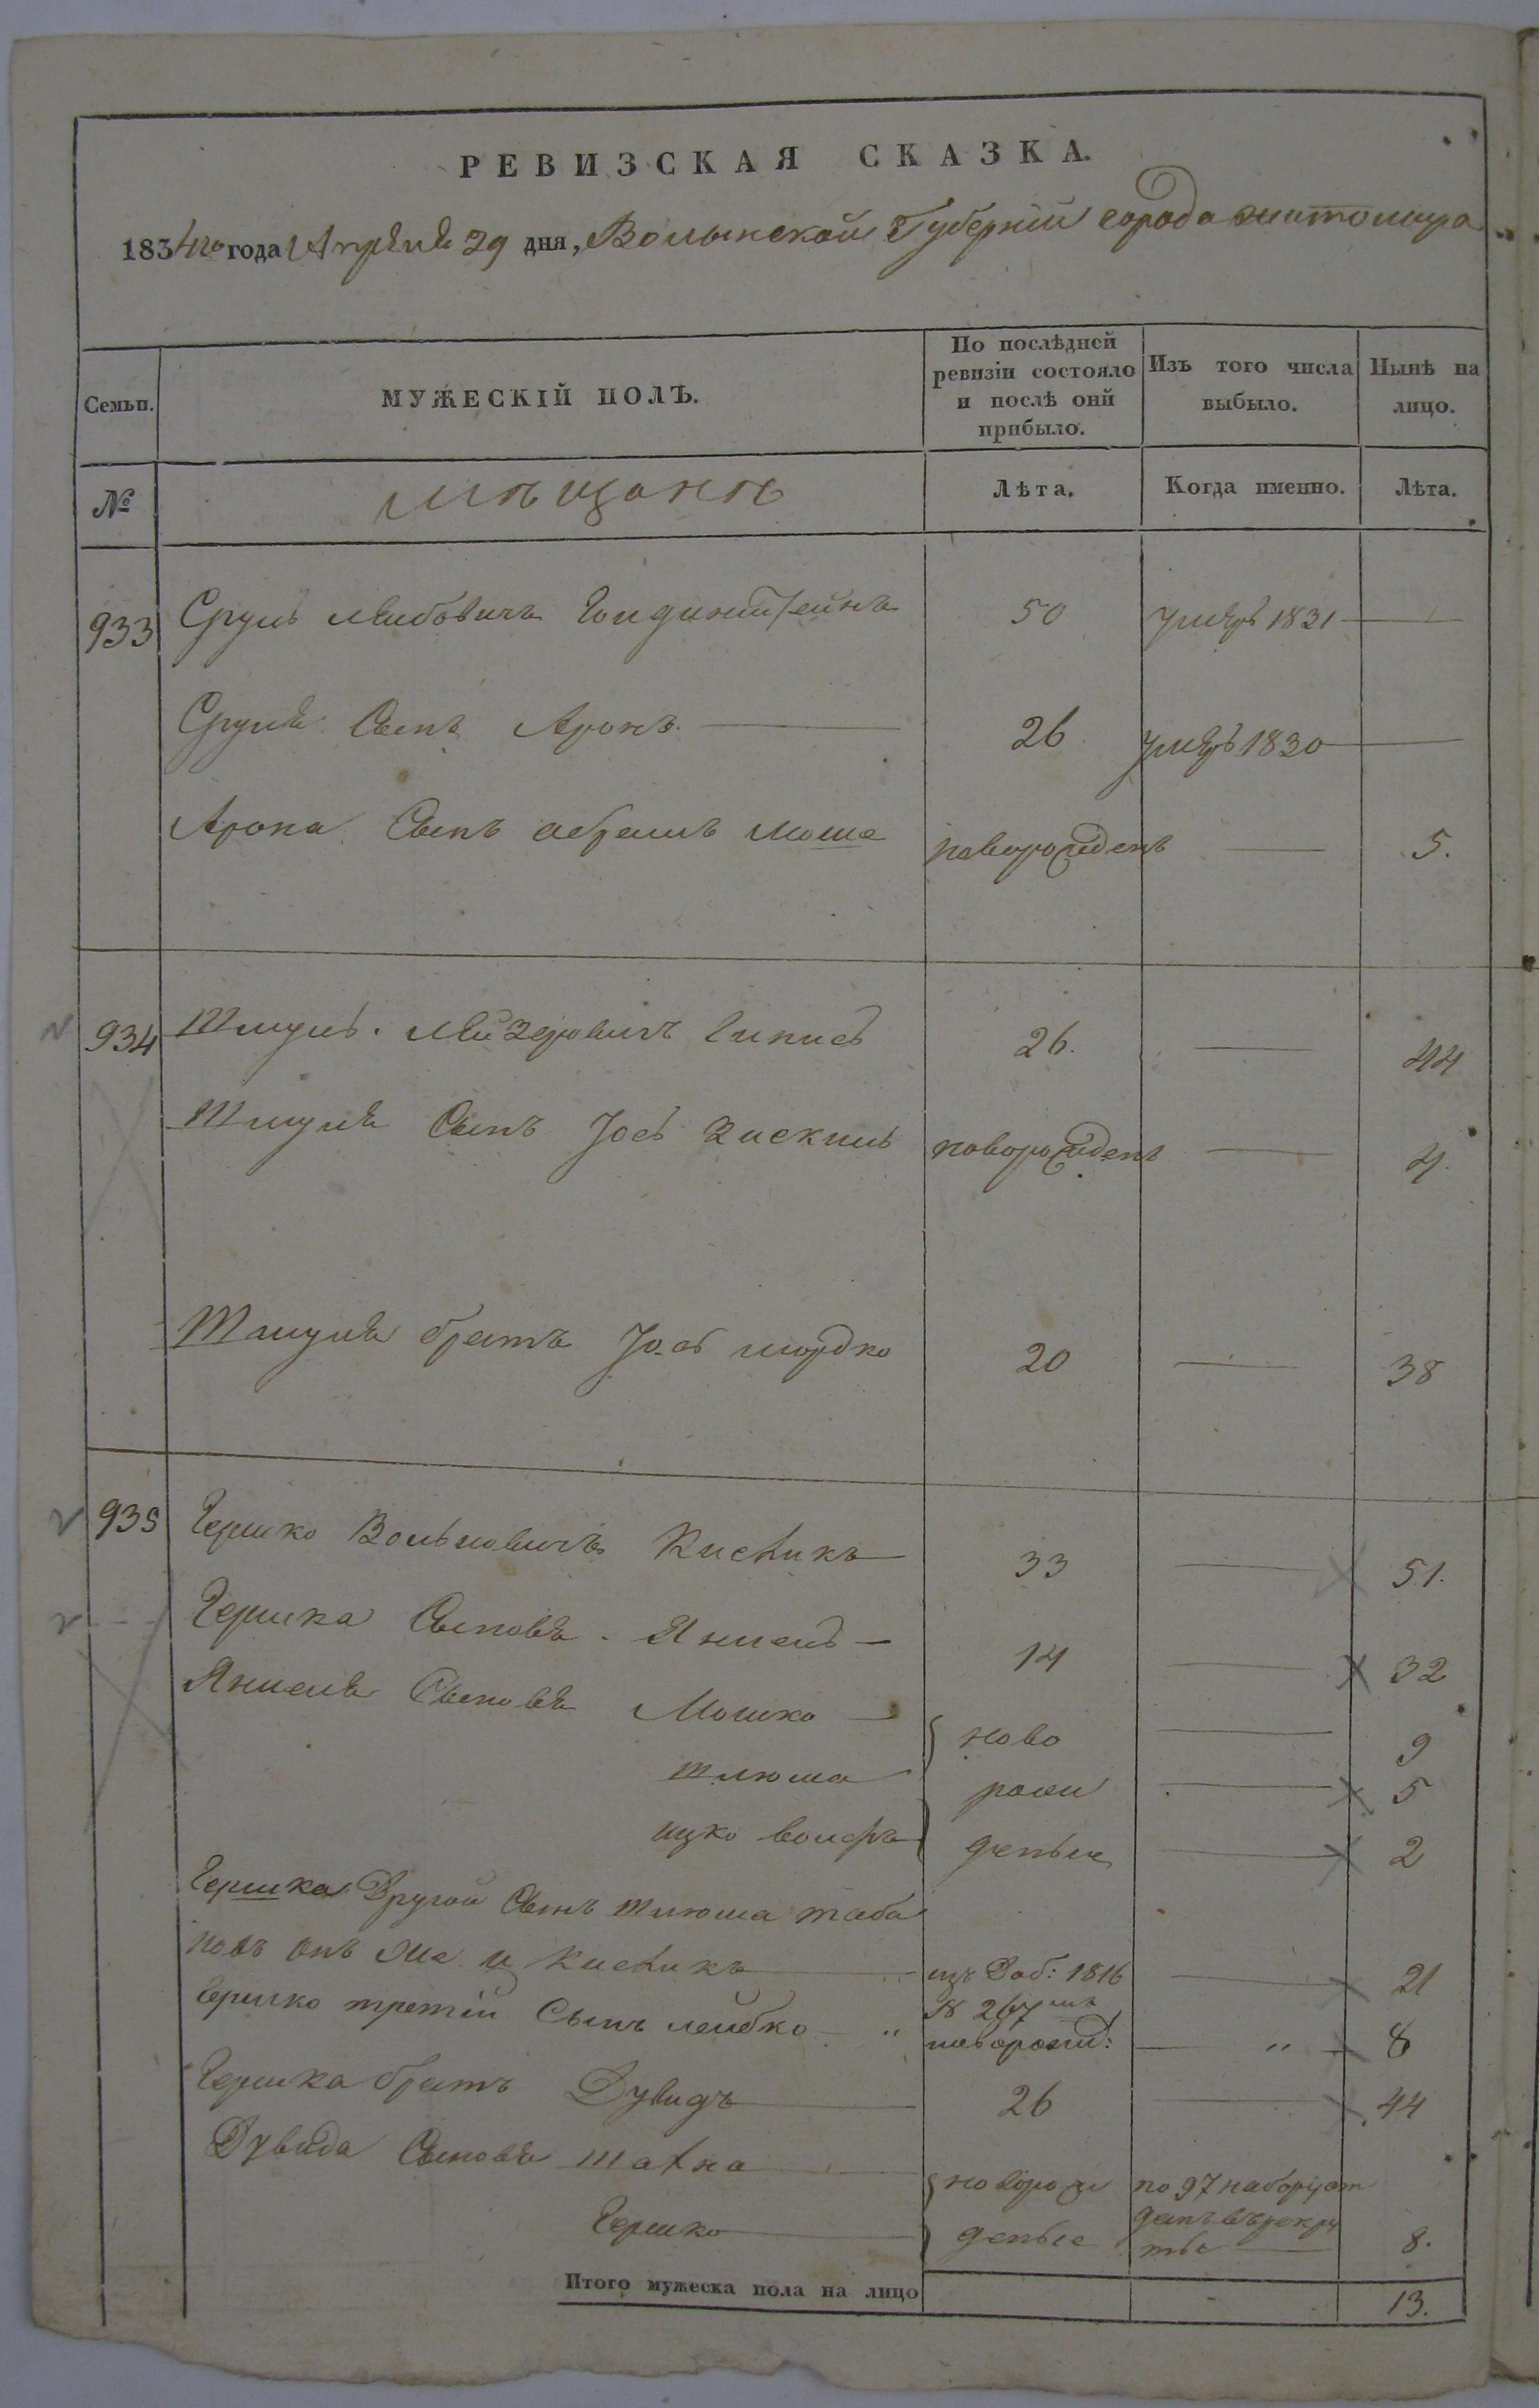 РЕВИЗСКАЯ СКАЗКА.
1834го года Апреля 29 дня, Волынской Губерніи города житомира
Семьи. МУЖЕСКІЙ ПОЛЪ. По послѣдней ревизіи состояло и послѣ оній прибыло. Изъ того числа выбыло. Нынѣ на лицо.
№ мѣщанѣ Лѣта. Когда именно. Лѣта.
933 Сруль Лейбовичъ 50 умеръ 1831 —
Сруля Сынъ Аронъ — 26 умеръ 1830 —
Арона Сынъ абрамъ моше новорожденъ — 5.
934 Шмуль Лейзеровичъ 26. — 44
Шмуля Сынъ Іось Зискинь новорожденъ — 4.
Шмуля братъ Іось мордко 20 — 38
935 Гершко Вольковичъ Киевикъ 33 — 51.
Гершка Сыновя Янкель — 14 — 32
Янкеля Сыновя Мошко — ново — 9
шлюма рожи — 5
ицко вольфъ денъіе — 2
Гершка Другой Сынъ шлюма
онъ же и Киевикъ — изъ Доб: 1816 — 21
№ 267
Гершко третій Сынъ лейбко — " новорожд: — " — 8
Гершка братъ Дувидъ 26 — 44
Дувида Сыновя — новорож по 97 набору от
данъ въ рекру
Гершко — денъіе ты — 8.
Итого мужеска пола на лицо 13.